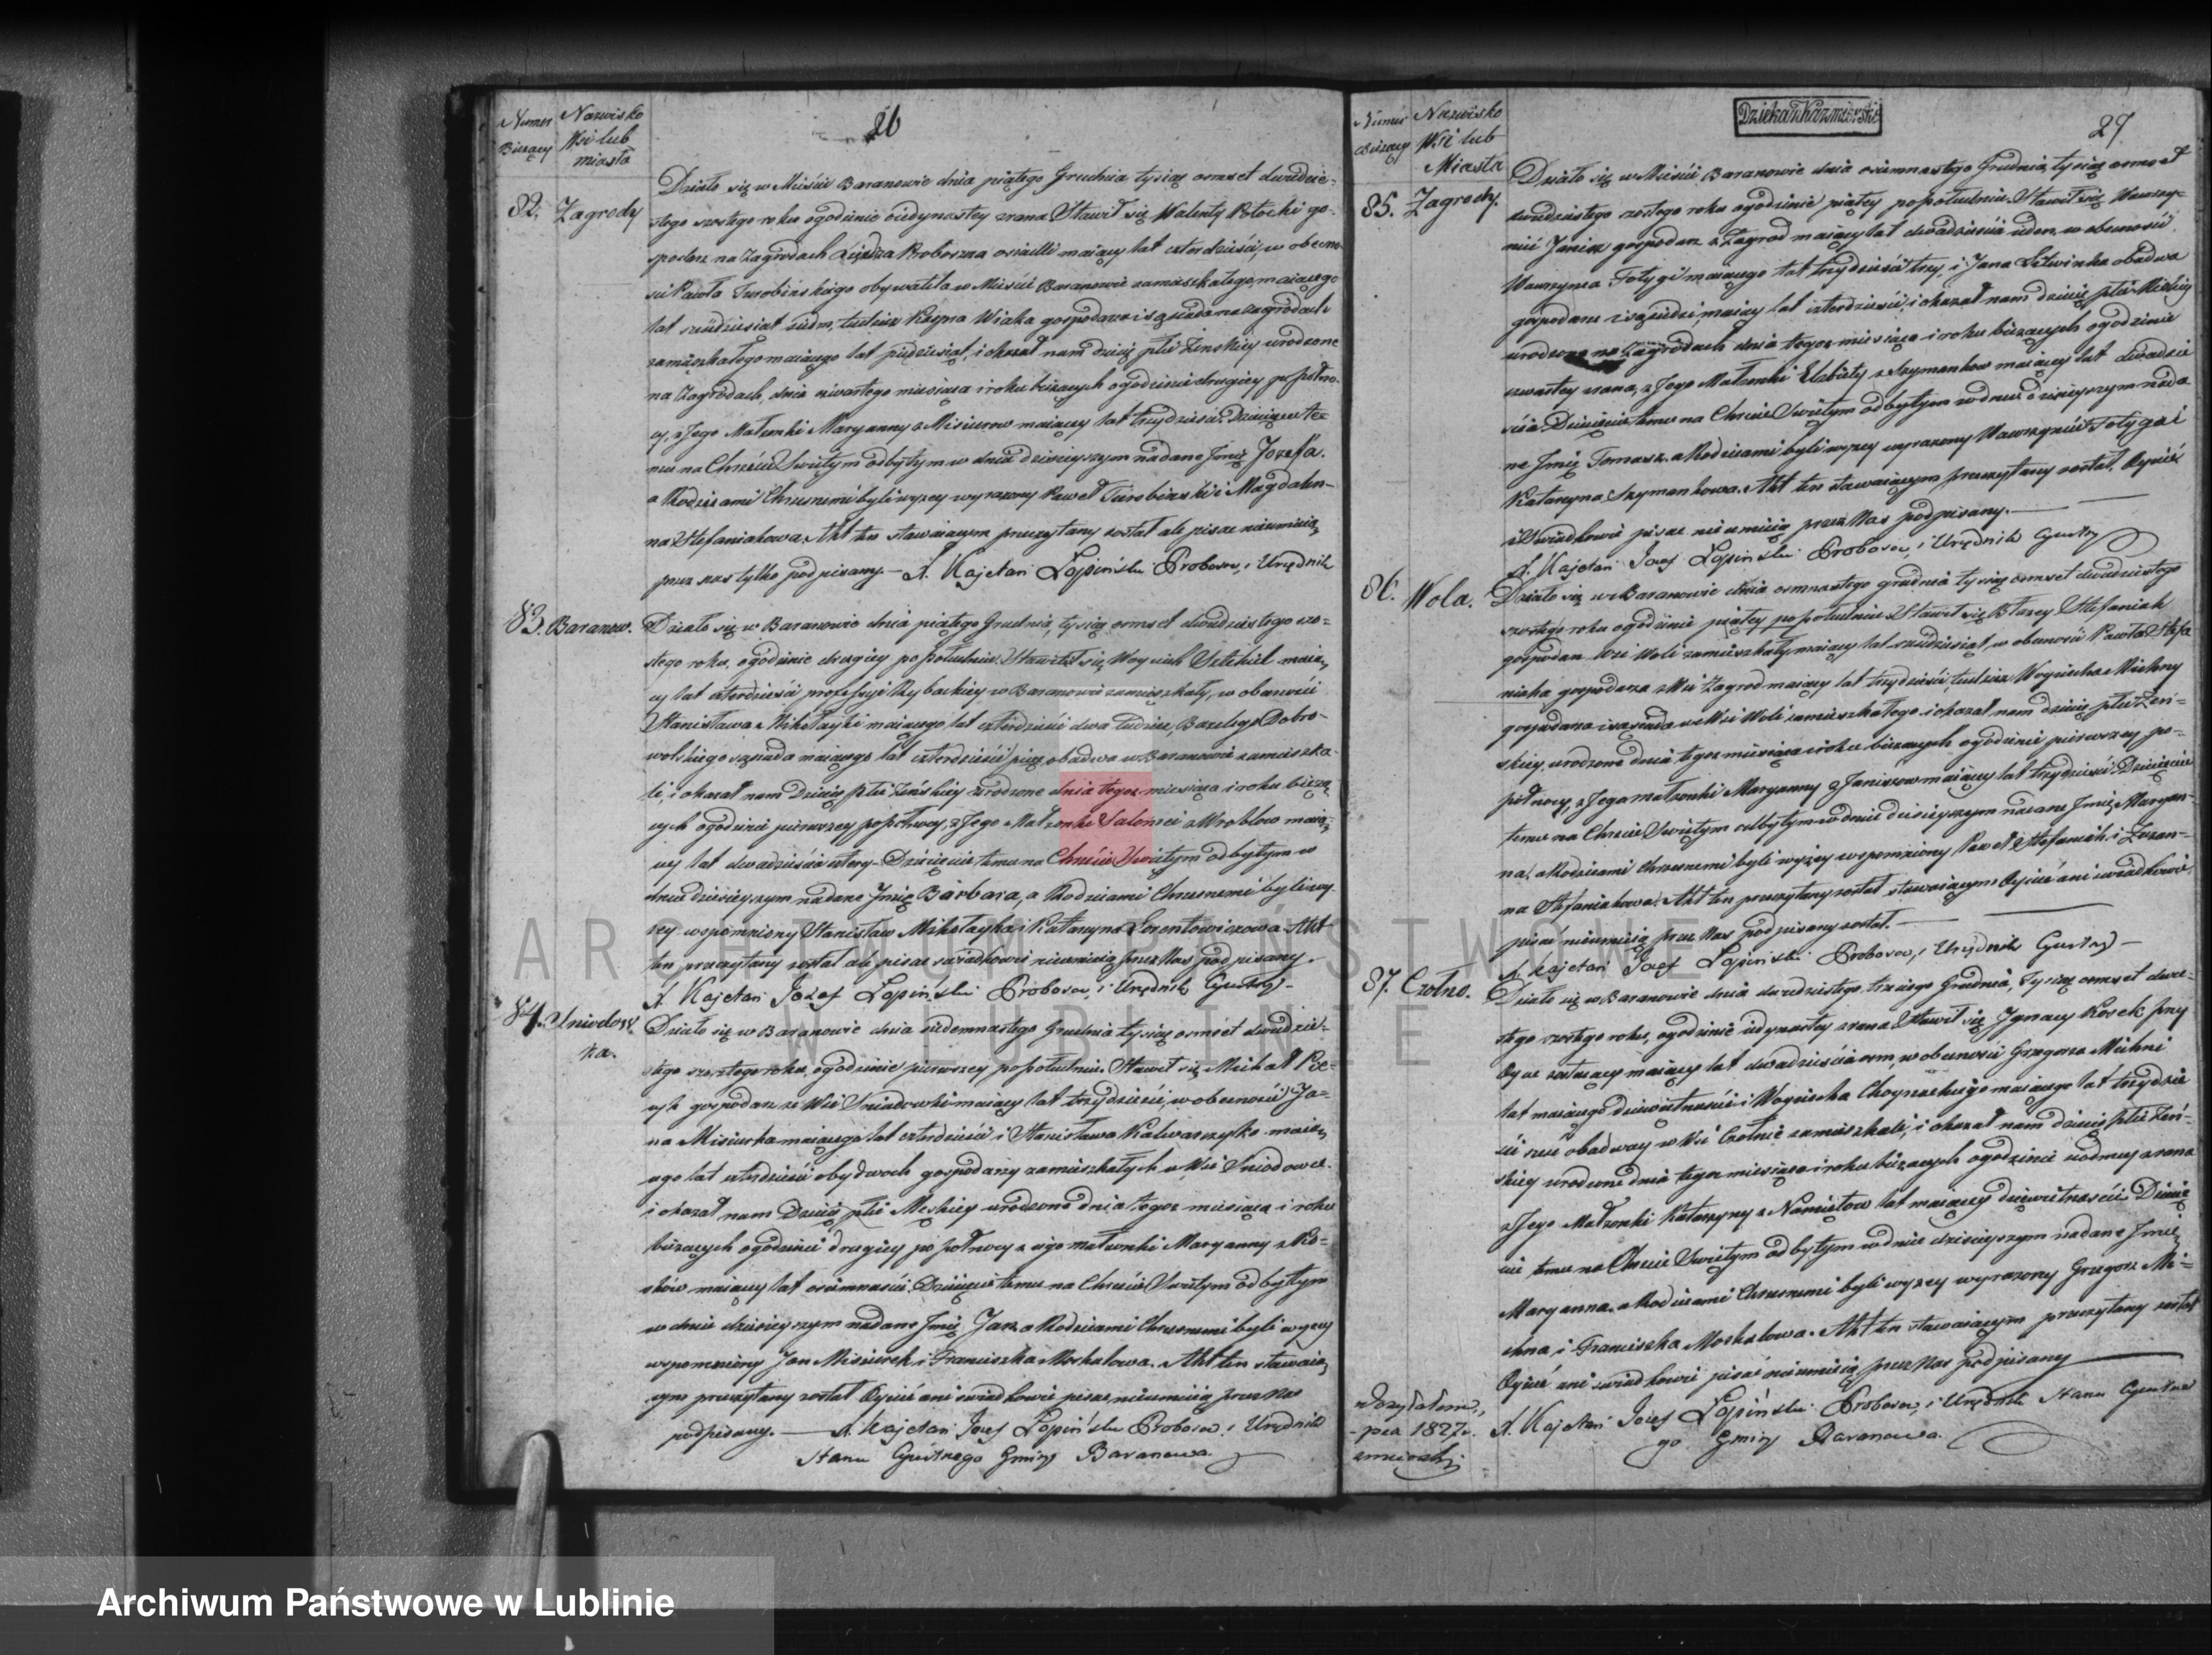 Numer Bieżący
Nazwisko Wsi lub miasta
26
82. Zagrody
Działo się w Mieście Baranowie dnia piątego Grudnia tysiąc osmset dwudzie-
stego szostego roku o godzinie iedynastey zrana Stawił się Walenty Potocki go-
spodarz na Zagrodach Xiędza Proboszcza osiadli maiący lat czterdzieści, w obecno-
ści Pawła Turobińskiego obywatela w Mieście Baranowie zamieszkałego, maiącego
lat sześćdziesiąt siedm, tudzież Wiaka gospodarza i sąsiada na zagrodach
zamieszkałego maiącego lat pięćdziesiąt, i okazał nam dziecię płci Żenskiey urodzone
na Zagrodach, dnia czwartego miesiąca i roku bieżących o godzinie drugiey po północ-
cy, z Jego Małżonki Maryanny z Misiurow maiącey lat trzydzieści. Dziecięciu te-
mu na Chrzcie Swiętym odbytym w dniu dzisieyszym nadane Jmię Jozefa.
a Rodzicami Chrzesnemi byli wyzey wyrazony Paweł Turobinski i Magdalen-
na Stefaniakowa. Akt ten stawaiącym przeczytany został ale pisac nieumieią,
przez nas tylko podpisany. — X. Kajetan Łopiński Proboszcz i Urzędnik
83. Baranow.
Działo się w Baranowie dnia piątego Grudnia, tysiąc osmset dwudziestego szo-
stego roku, o godzinie drugiey po południu. Stawił się Woyciech maią-
cy lat czterdzieści professyi Rybackiey w Baranowie zamieszkały, w obecności
Stanisława Mikołayki maiącego lat czterdzieści dwa tudzież, Bazylego Dobro-
wolskiego sąsiada maiącego lat czterdzieści pięc obadwa w Baranowie zamieszka-
li, i okazał nam Dziecię płci Żeńskiey urodzone dnia tegoż miesiąca i roku bieżą-
cych o godzinie pierwszey po północy, z Jego Małżonki Salomei z Wroblow maią-
cey lat dwadzieścia cztery. Dziecięciu temu na Chrzcie Swiętym odbytym w
dniu dzisieyszym nadane Jmię Barbara, a Rodzicami Chrzesnemi byli wy-
zey wspomniony Stanisław Mikołayka i Katarzyna Lorentowiczowa. Akt
ten przeczytany został ale pisac swiadkowie nieumieią przez Nas podpisany.
X. Kajetan Jozef Łopiński Proboszcz i Urzędnik Cywilny. —
84. Sniadow-
ka.
Działo się w Baranowie dnia siedemnastego Grudnia tysiąc osmset dwudzie-
stego szostego roku, o godzinie pierwszey po południu. Stawił się Michał
gospodarz ze Wsi Sniadowki maiący lat trzydzieści, w obecności Ja-
na Misiurka maiącego lat czterdzieści i Stanisława maią-
cego lat czterdzieści obydwoch gospodarzy zamieszkałych w Wsi Sniadowce.
i okazał nam Dziecię płci Męskiey urodzone dnia tegoż miesiąca i roku
bieżących o godzinie drugiey po północy z iego małżonki Maryanny z Ko-
skow maiącey lat osiemnaście. Dziecięciu temu na Chrzcie Swiętym odbytym
w dniu dzisieyszym nadane Jmię Jan a Rodzicami Chrzesnemi byli wyzey
wspomniony Jan Misiurek i Franciszka Moskalowa. Akt ten stawaią-
cym przeczytany został Oyciec ani swiadkowie pisac nieumieią przez Nas
podpisany. — X. Kajetan Jozef Łopiński Proboszcz i Urzędnik
Stanu Cywilnego Gminy Baranowa.
Numer Bieżący
Nazwisko Wsi lub Miasta
Dziekan Kazmierski
27
85. Zagrody.
Działo się w Mieście Baranowie dnia osiemnastego Grudnia, tysiąc osmset
dwudziestego szostego roku o godzinie piątey po południu. Stawił się Wawrzy-
niec Janisz gospodarz z Zagrod maiący lat dwadzieścia siedem, w obecności
Wawrzynca Fotygi maiącego lat trzydzieści trzy, i Jana Litwinka obadwa
gospodarze i sąsiedzi, maiący lat czterdzieści, i okazał nam dziecię płci Męskiey
urodzone na Zagrodach dnia tegoż miesiąca i roku bieżących o godzinie
czwartey zrana, z Jego Małżonki Elzbiety z Szymankow maiącey lat dwadzie-
ścia. Dziecięciu temu na Chrzcie Swiętym odbytym w dniu dzisieyszym nada-
ne Jmię Tomasz. a Rodzicami byli wyzey wyrazony Wawrzyniec Fotyga i
Katarzyna Szymankowa. Akt ten stawaiącym przeczytany został, Oyciec
i Swiadkowie pisac nie umieią przez Nas podpisany. —
X. Kajetan Jozef Łopiński Proboszcz i Urzędnik Cywilny
86. Wola.
Działo się w Baranowie dnia osmnastego grudnia tysiąc osmset dwudziestego
szostego roku o godzinie piątey po południu Stawił się Błazey Stefaniak
gospodarz Wsi Woli zamieszkały maiący lat sześćdziesiąt, w obecności Pawła Stefa-
niaka gospodarza z Wsi Zagrod maiący lat trzydzieści, tudzież Woyciecha Michny
gospodarza i sąsiada we Wsi Woli zamieszkałego i okazał nam dziecię płci Żeń-
skiey, urodzone dnia tegoż miesiąca i roku bieżących o godzinie pierwszey po-
północy, z Jego małżonki Maryanny z Janiszow maiącey lat trzydzieści. Dziecięciu
temu na Chrzcie Swiętym odbytym w dniu dzisieyszym nadane Jmię Maryan-
na, a Rodzicami Chrzesnemi byli wyzey wspomniony Paweł Stefaniak i Zuzan-
na Stefaniakowa. Akt ten przeczytany został stawaiącym Oyciec ani swiadkowie
pisac nieumieią przez Nas podpisany został. —
X. Kajetan Jozef Łopiński Proboszcz i Urzędnik Cywilny —
87. Czołno.
Działo się w Baranowie dnia dwudziestego trzeciego Grudnia, Tysiąc osmset dwu-
stego szostego roku, o godzinie iedynastey zrana Stawił się Jgnacy Kosek przy
Oycu zostaiący maiący lat dwadzieścia osm, w obecności Grzegorza Michni
lat maiącego dziewiętnaście i Woyciecha maiącego lat trzydzie-
ści sześć obadwa w Wsi Czołnie zamieszkali, i okazał nam dziecię płci Żeń-
skiey urodzone dnia tegoż miesiąca i roku bieżących o godzinie siodmey zrana
z Jego Małżonki Katarzyny z lat maiącey dziewiętnaście. Dziecię-
ciu temu na Chrzcie Swiętym odbytym w dniu dzisieyszym nadane Jmię
Maryanna. a Rodzicami Chrzesnemi byli wyzey wyrazony Grzegorz Mi-
chna i Franciszka Moskalowa. Akt ten stawaiącym przeczytany został
Oyciec ani swiadkowie pisac nieumieią przez Nas podpisany
X. Kajetan Jozef Łopiński Proboszcz i Urzędnik Stanu Cywilne-
go Gminy Baranowa.
1827
ARCHIWUM PAŃSTWOWE
W LUBLINIE
Archiwum Państwowe w Lublinie